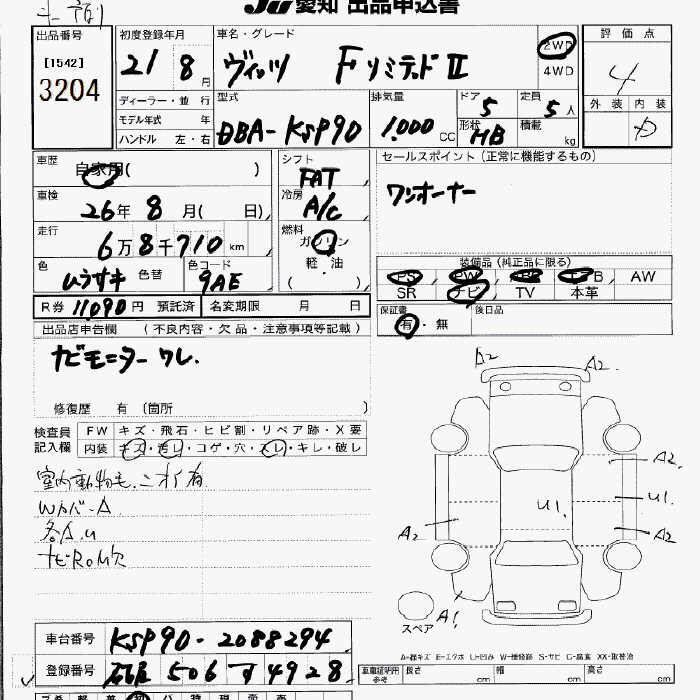 JU 愛知 出品申込書
出品番号
[1542]
3204
初度登録年月
21 8月
ディーラー・並 行
モデル年式 年
ハンドル 左・右
車名・グレード
ヴィッツ FリミテッドⅡ
2WD
4WD
型式
DBA-KSP90
排気量
1.000 CC
ドア
5
定員
5 人
形状
HB
積載
kg
評価点
4
外装 内装
D
車歴
自家用( )
車検
26年 8月( 日)
走行
6万8千710km
色
色替
色コード
9AE
R券 11,090円 預託済
名変期限 月 日
シフト
FAT
冷房
A/C
燃料
ガソリン
軽・油
( )
セールスポイント(正常に機能するもの)
ワンオーナー
装備品(純正品に限る)
PS PW ABS エアB AW
SR ナビ TV 本革
保証書
有・無
後日品
出品店申告欄 (不良内容・欠品・注意事項等記載)
ナビモニター ワレ.
修復歴 有 〔箇所 〕
検査員
記入欄
FW キズ・飛石・ヒビ割・リペア跡・X要
内装 キズ・汚レ・コゲ・穴・スレ・キレ・破レ
室内動物毛.ニオイ有
Wカバー A
各A.U
ナビROM欠
A2
A2
A2
U1.
U1
A2
A2
A1
スペア
A-線キズ E-エクボ U-凹み W-補修跡 S-サビ C-腐食 XX-取替済
車台番号
KSP90-2088294
登録番号
506 す 4928
車庫証明用
参考
長さ cm
幅 cm
高さ cm